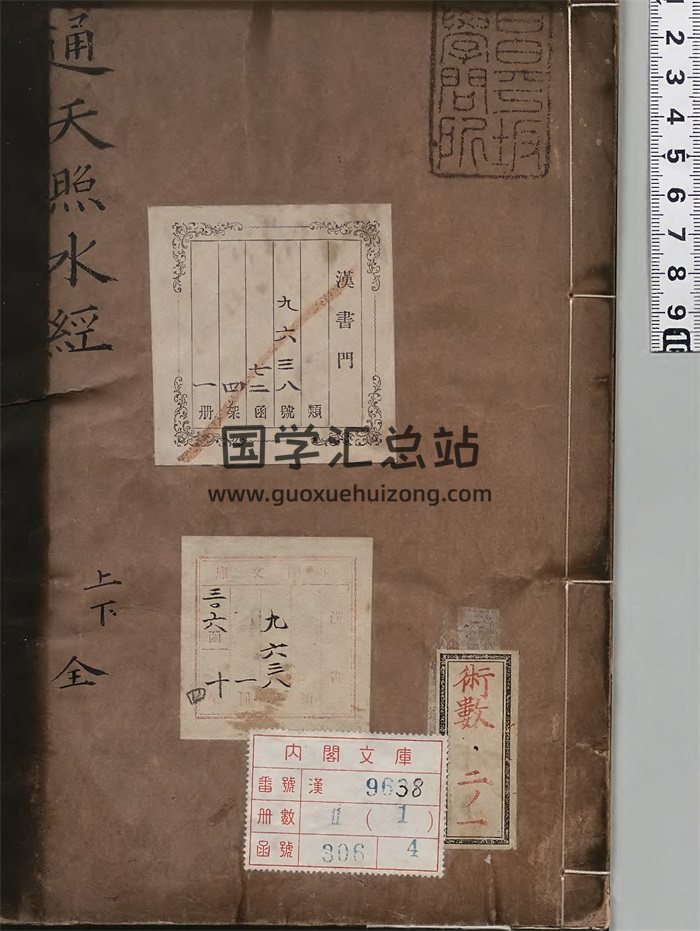 通天照水經
上下
全
昌平坂
學問所
漢書門
類
九六三八
號
七二
函
四
架
一
册
国学汇总站
www.guoxuehuizong.com
九六三八
一
十
四
三〇六
函
術數
二ノ一
内閣文庫
番號 漢 9638
册數 1 ( 1 )
函號 306 4
1 2 3 4 5 6 7 8 9 10